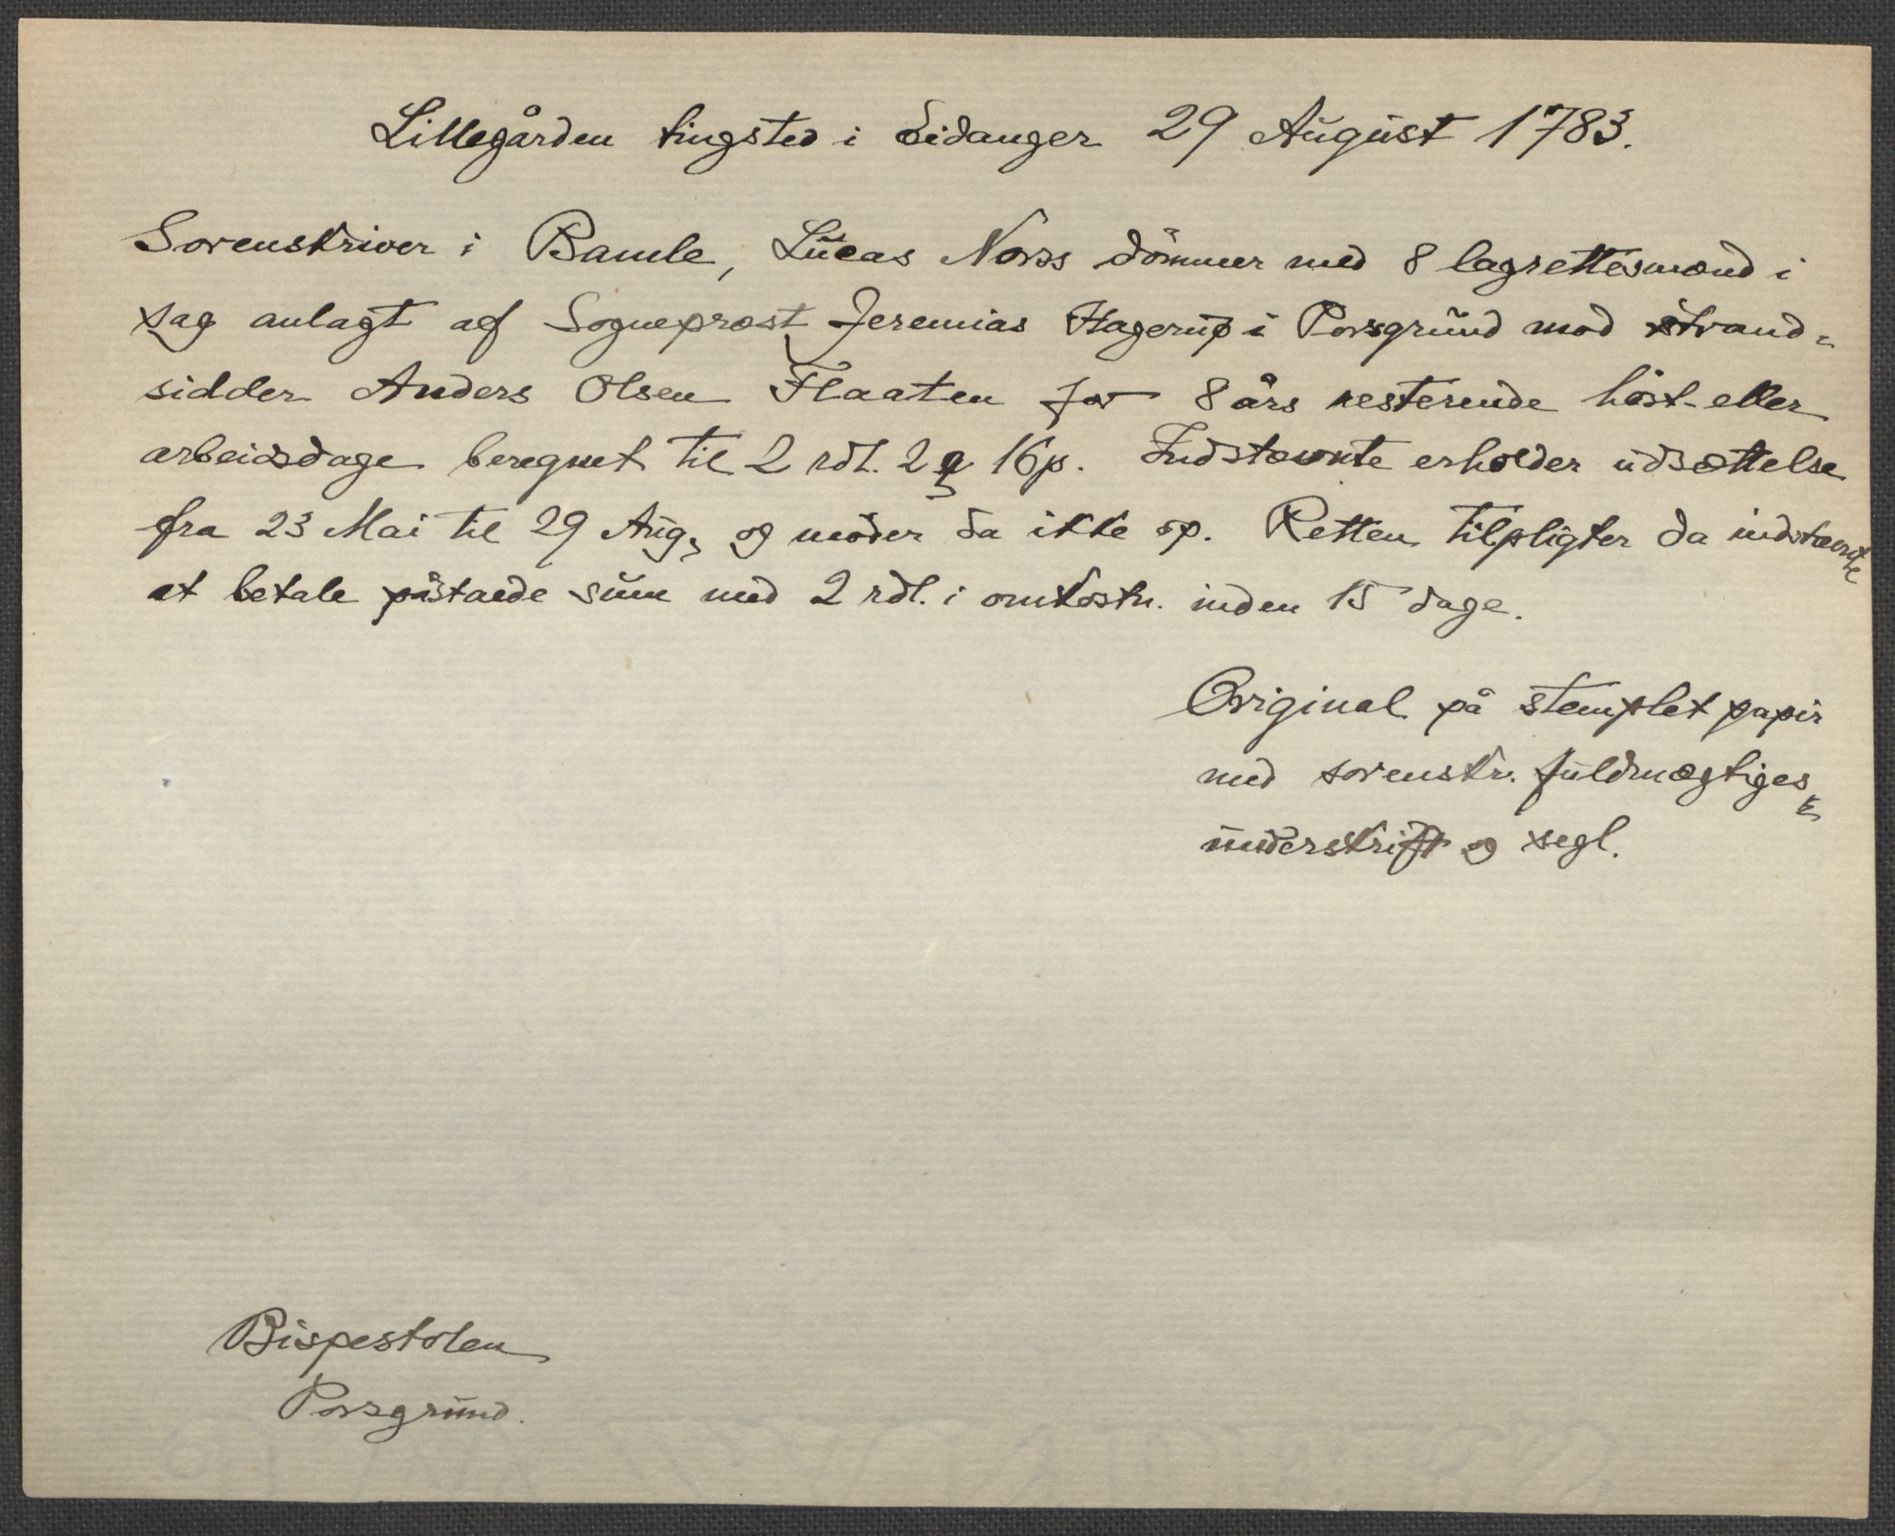 Lillegården tingsted i Eidanger 29 August 1783.
Sorenskriver i Bamle, Lucas Norss dömmer med 8 lagrettesmænd i
sag anlagt af Sognepræst Jeremias Hagerup i Porsgrund mod strand-
sidder Anders Olsen Flaaten for 8 års resterende höst- eller
arbeidsdage beregnet til 2 rdl. 2 16 p. Indstævnte erholder udsættelse
fra 23 Mai til 29 Aug. og möder da ikke op. Retten tilpligter da indstævnte
at betale påstaede sum med 2 rdl. i omkostn. inden 15 dage.
Original på stemplet papir
med sorenskr. fuldmægtiges
underskrift og segl.
Bispestolen
Porsgrund.